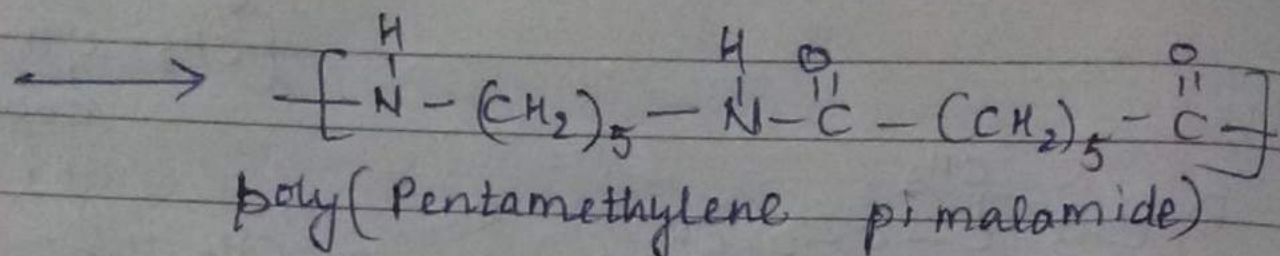 H H O O
⟶ [ N - (CH₂)₅ - N - C - (CH₂)₅ - C ]
poly(Pentamethylene pimalamide)